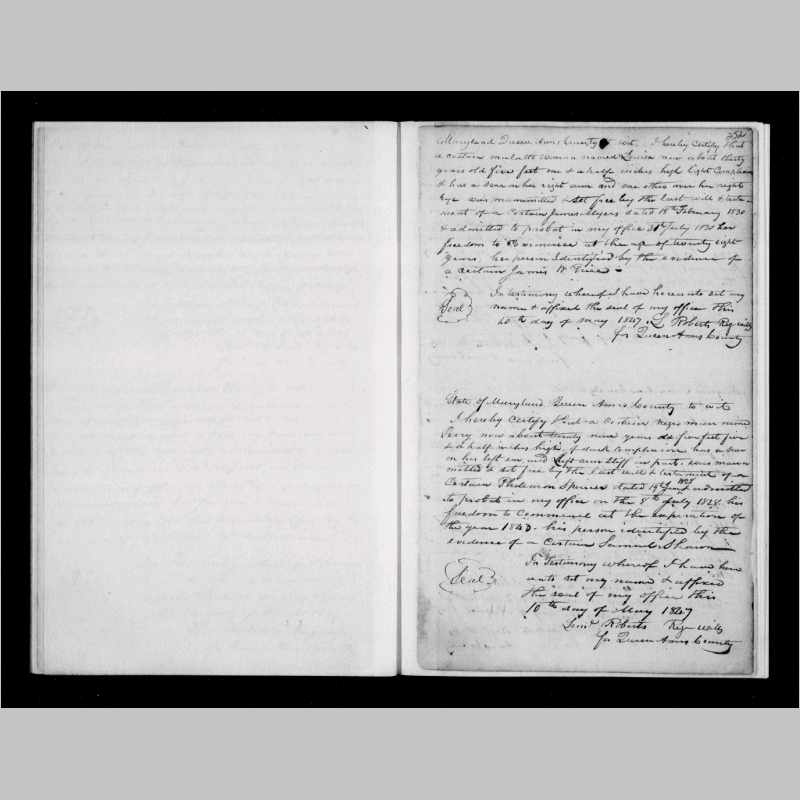 Maryland Queen Anns County to wit, I hereby Certify that
a certain mulatto woman named Louisa now about thirty
years old five feet one & a half inches high light Complexion
& has a scar on her right arm and one other over her right
Eye was manumitted & set free by the last will & testa-
ment of a Certain James Myers dated 18th February 1830
& admitted to probat in my office July 1830 her
freedom to commence at the age of twenty eight
years, her person Identified by the evidence of
a certain James W
In testimony whereof I have hereunto set my
Seal name & affixed the seal of my office this
10th day of may 1847. Roberts Regr wills
for Queen Anns County
State of Maryland Queen Anns County to wit
I hereby Certify that a Certain negro man name
now about nine years old five feet five
& a half inches high, of dark complexion has a scar
on his left and left arm stiff in part, was manu
mitted & set free by the last will & testament of a
Certain Philemon Spencer dated 19th 1828 & admitted
to probat in my office on the 8th July 1828. his
freedom to Commence at the expiration of
the year 1843. his person identified by the
evidence of a Certain Samuel
In Testimony whereof I have here
Seal unto set my name & affixed
the seal of my office this
10th day of May 1847
Roberts Regr wills
for Queen Anns County